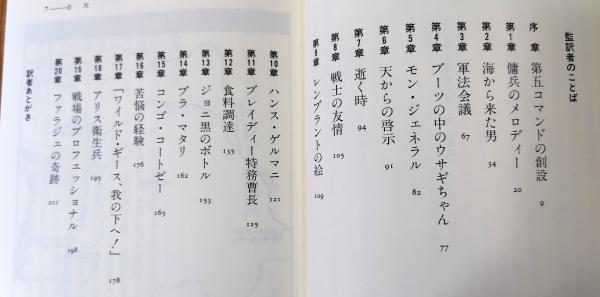 監訳者のことば
序章 第五コマンドの創設 9
第1章 傭兵のメロディー 20
第2章 海から来た男 34
第3章 軍法会議 67
第4章 ブーツの中のウサギちゃん 77
第5章 モン・ジェネラル 82
第6章 天からの啓示 91
第7章 逝く時 94
第8章 戦士の友情 105
第9章 レンブラントの絵 109
7——目 次
第10章 ハンス・ゲルマニ 121
第11章 ブレイディー特務曹長 125
第12章 食料調達 135
第13章 ジョニ黒のボトル 153
第14章 ブラ・マタリ 162
第15章 コンゴ・コートゼー 165
第16章 苦悩の経験 176
第17章 「ワイルド・ギース、我の下へ!」 178
第18章 アリス衛生兵 195
第19章 戦場のプロフェッショナル 198
第20章 ファラジェの奇跡 211
訳者あとがき